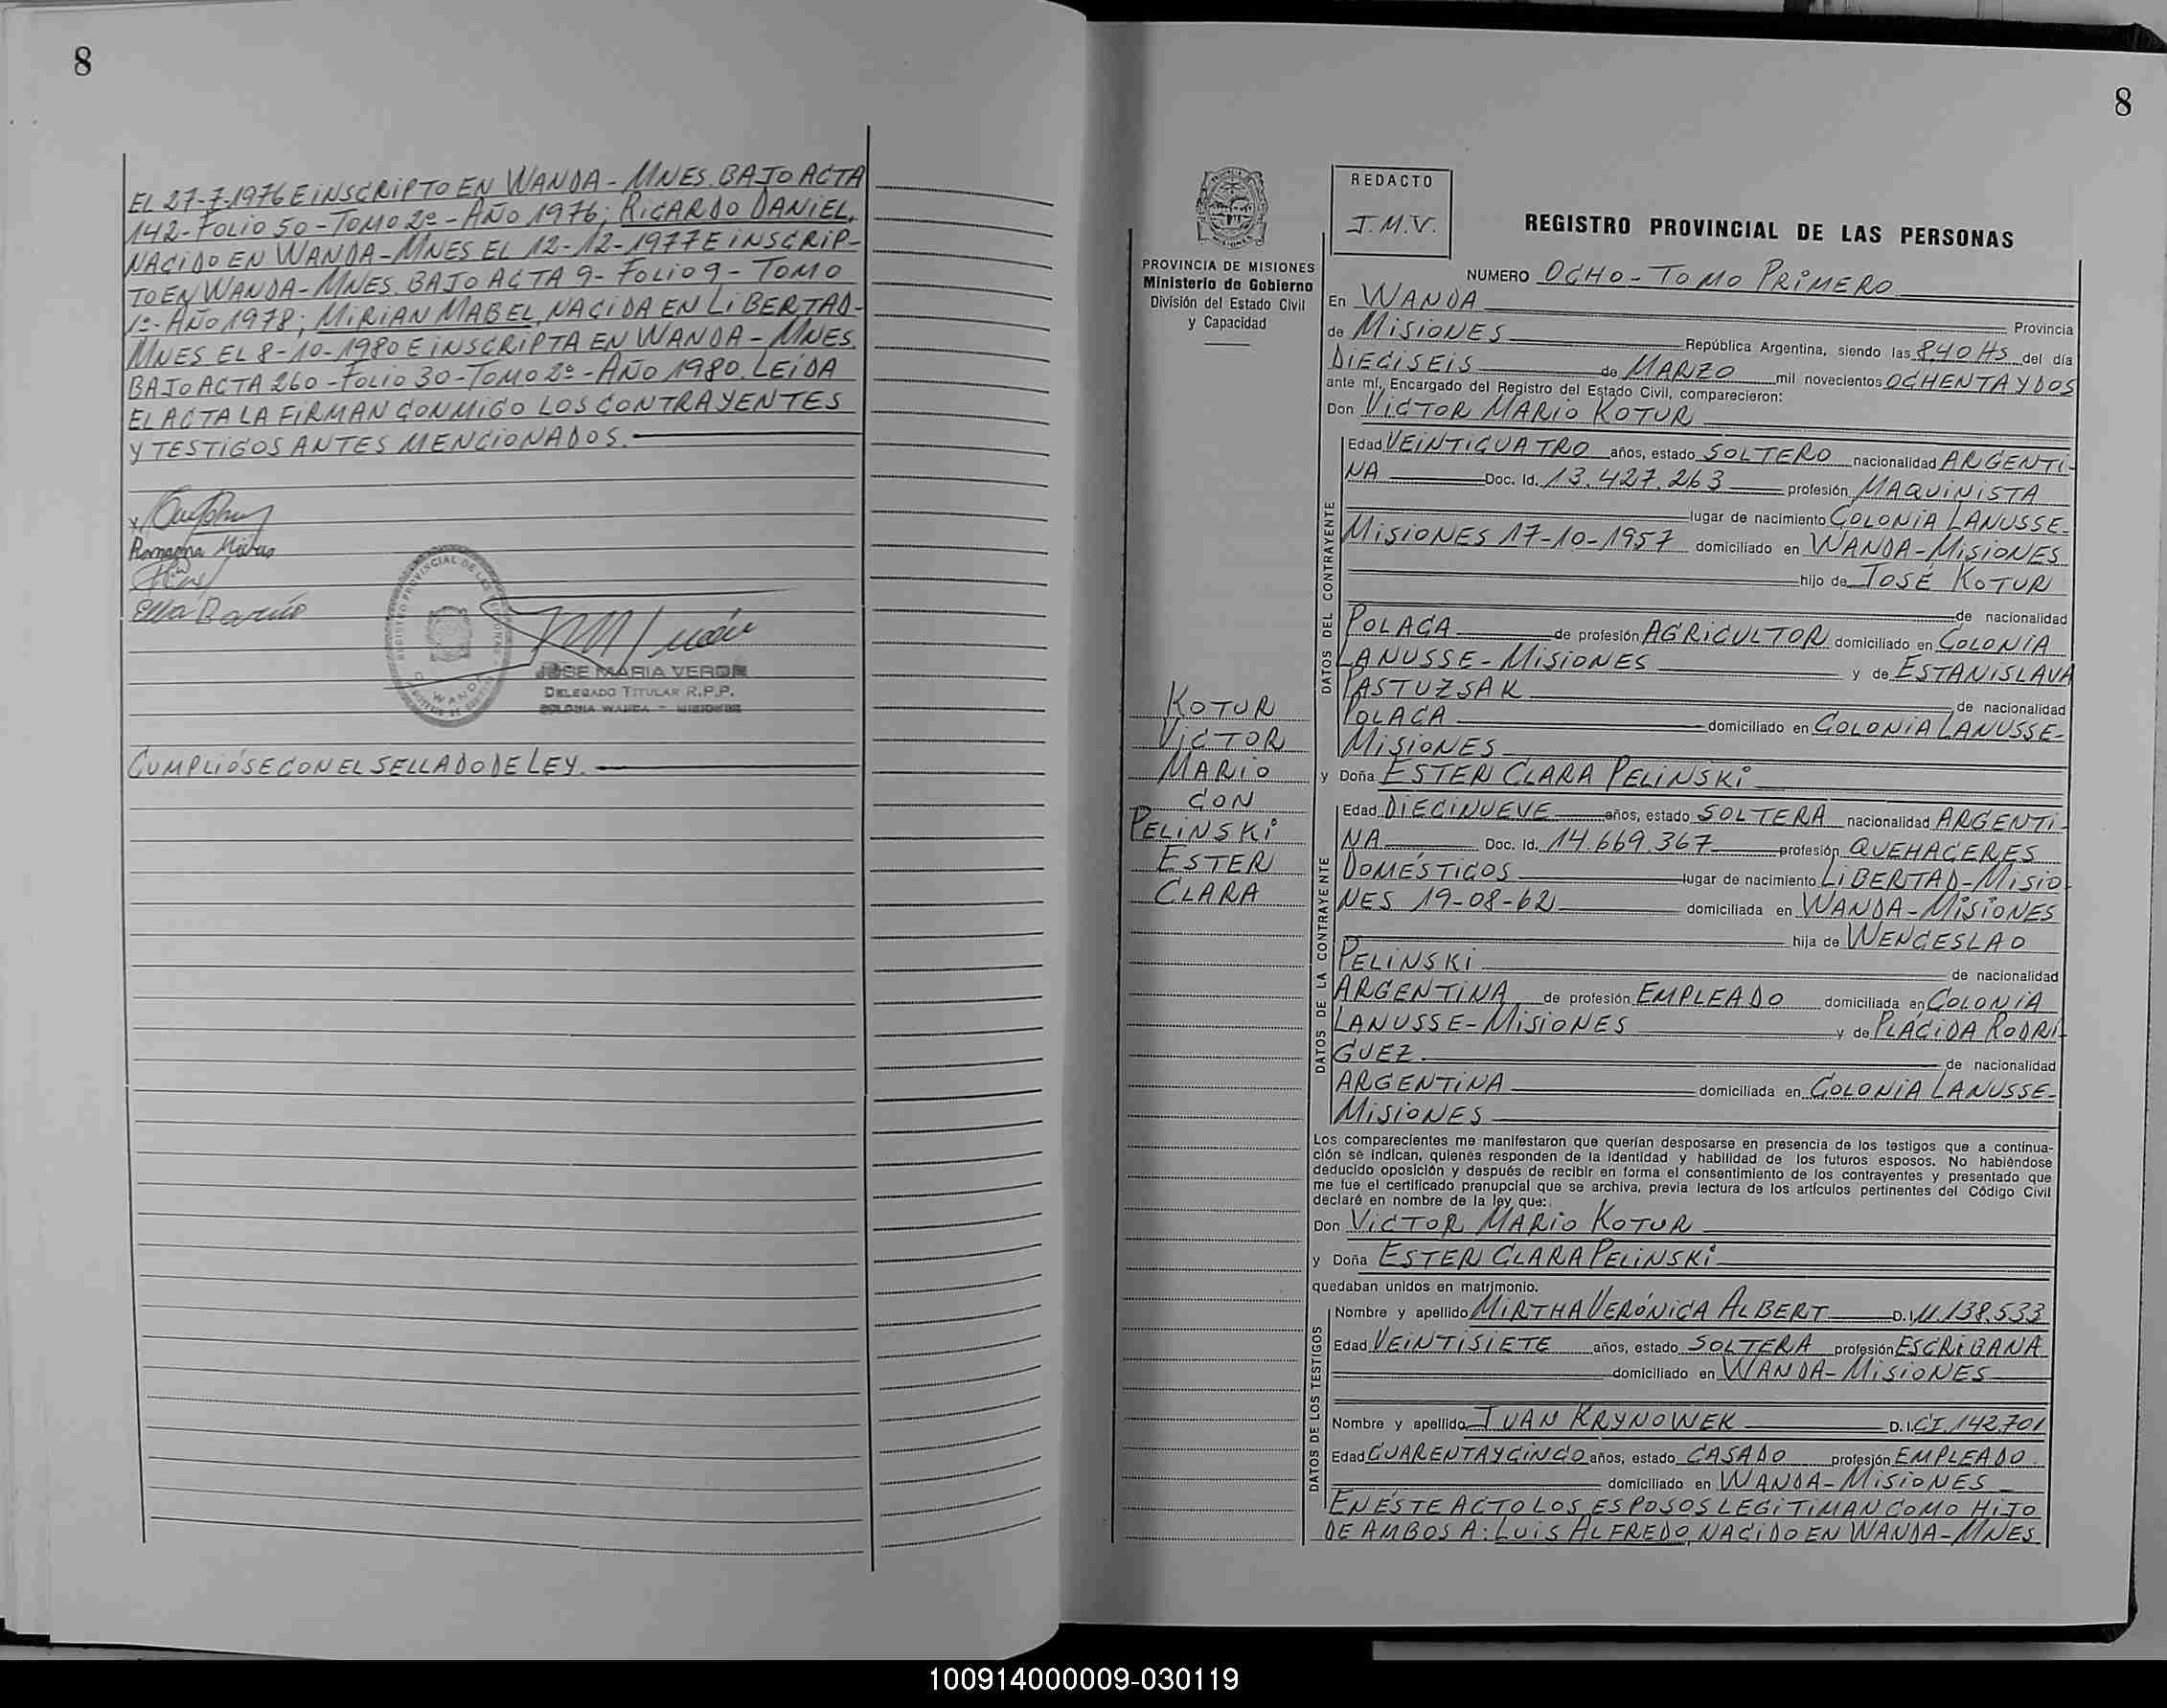 8
EL 27-7-1976 E iNSCRiPTO EN WANDA - MNES. BAJO ACTA
142 - FOLiO 50 - TOMO 2º - AÑO 1976; RiCARDO DANiEL,
NACiDO EN WANDA - MNES EL 12-12-1977 E iNSCRiP-
TO EN WANDA - MNES. BAJO ACTA 9 - FOLiO 9 - TOMO
1º - AÑO 1978; MiRiAN MABEL, NACiDA EN LiBERTAD -
MNES EL 8-10-1980 E iNSCRiPTA EN WANDA - MNES.
BAJO ACTA 260 - FOLiO 30 - TOMO 2º - AÑO 1980. LEíDA
EL ACTA LA FiRMAN CONMiGO LOS CONTRAYENTES
Y TESTiGOS ANTES MENCiONADOS.
Ella
JOSE MARIA VERON
DELEGADO TITULAR R.P.P.
COLONIA WANDA - MISIONES
CUMPLiÓSE CON EL SELLADO DE LEY.
8
PROVINCIA DE MISIONES
Ministerio de Gobierno
División del Estado Civil
y Capacidad
REDACTO
J.M.V.
REGISTRO PROVINCIAL DE LAS PERSONAS
NUMERO OCHO - TOMO PRiMERO
En WANDA Provincia
de MiSiONES República Argentina, siendo las 8,40 HS del día
DiECiSEiS de MARZO mil novecientos OCHENTA Y DOS
ante mí, Encargado del Registro del Estado Civil, comparecieron:
Don ViCTOR MARiO KOTUR
DATOS DEL CONTRAYENTE
Edad VEiNTiCUATRO años, estado SOLTERO nacionalidad ARGENTi-
NA Doc. Id. 13.427.263 profesión MAQUiNiSTA
lugar de nacimiento COLONiA LANUSSE-
MiSiONES 17-10-1957 domiciliado en WANDA - MiSiONES
hijo de JOSÉ KOTUR
de nacionalidad
POLACA de profesión AGRiCULTOR domiciliado en COLONiA
LANUSSE - MiSiONES y de ESTANiSLAVA
PASTUZSAK de nacionalidad
POLACA domiciliado en COLONiA LANUSSE-
MiSiONES
KOTUR
ViCTOR
MARiO
CON
PELiNSKi
ESTER
CLARA
y Doña ESTER CLARA PELiNSKi
DATOS DE LA CONTRAYENTE
Edad DiECiNUEVE años, estado SOLTERA nacionalidad ARGENTi-
NA Doc. Id. 14.669.367 profesión QUEHACERES
DOMÉSTiCOS lugar de nacimiento LiBERTAD - MiSiO-
NES 19-08-62 domiciliada en WANDA - MiSiONES
hija de WENCESLAO
PELiNSKi de nacionalidad
ARGENTiNA de profesión EMPLEADO domiciliada en COLONiA
LANUSSE - MiSiONES y de PLÁCiDA RODRi-
GUEZ de nacionalidad
ARGENTiNA domiciliada en COLONiA LANUSSE-
MiSiONES
Los comparecientes me manifestaron que querían desposarse en presencia de los testigos que a continua-
ción se indican, quienes responden de la identidad y habilidad de los futuros esposos. No habiéndose
deducido oposición y después de recibir en forma el consentimiento de los contrayentes y presentado que
me fue el certificado prenupcial que se archiva, previa lectura de los artículos pertinentes del Código Civil
declaré en nombre de la ley que:
Don ViCTOR MARiO KOTUR
y Doña ESTER CLARA PELiNSKi
quedaban unidos en matrimonio.
DATOS DE LOS TESTIGOS
Nombre y apellido MiRTHA VERÓNiCA ALBERT D.I. 11.138.533
Edad VEiNTiSiETE años, estado SOLTERA profesión ESCRiBANA
domiciliado en WANDA - MiSiONES
Nombre y apellido JUAN KRYNOWEK D.I. CI. 142.701
Edad CUARENTA Y CiNCO años, estado CASADO profesión EMPLEADO
domiciliado en WANDA - MiSiONES
EN ÉSTE ACTO LOS ESPOSOS LEGiTiMAN COMO HiJO
DE AMBOS A: LUiS ALFREDO, NACiDO EN WANDA - MNES
100914000009-030119